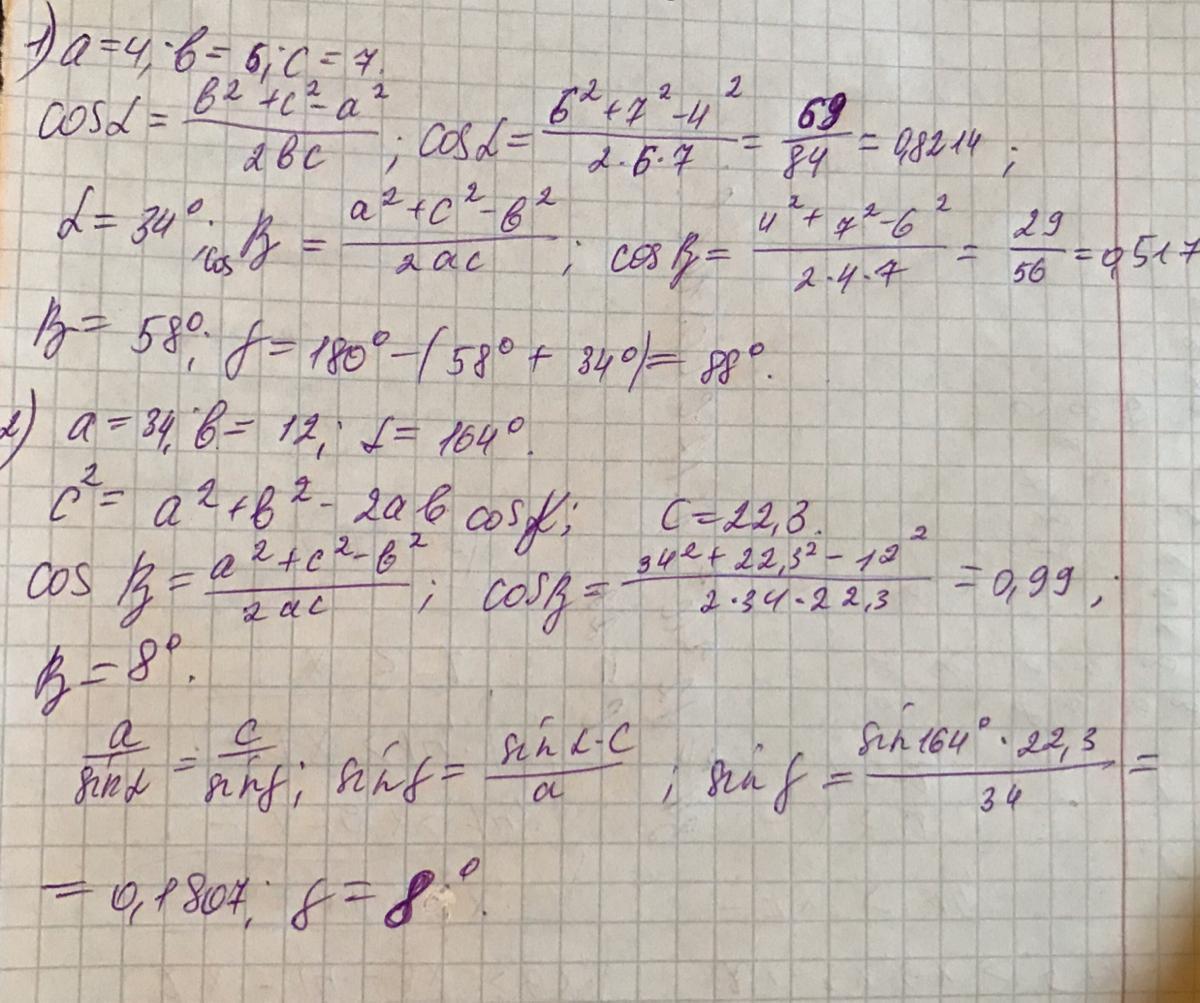 1) a=4; в=6; c=7.
cosα = (в²+c²-a²)/(2вc); cosα = (6²+7²-4²)/(2·6·7) = 69/84 = 0,8214;
α=34°; cosβ = (a²+c²-в²)/(2ac); cosβ = (4²+7²-6²)/(2·4·7) = 29/56 = 0,517
β = 58°; γ = 180°-(58°+34°) = 88°.
2) a=34; в=12; α=164°.
c² = a²+в²-2aв cosγ; c=22,3.
cosβ = (a²+c²-в²)/(2ac); cosβ = (34²+22,3²-12²)/(2·34·22,3) = 0,99;
β = 8°.
a/sinα = c/sinγ; sinγ = (sinα·c)/a; sinγ = (sin164°·22,3)/34 =
= 0,1807; γ = 8°.